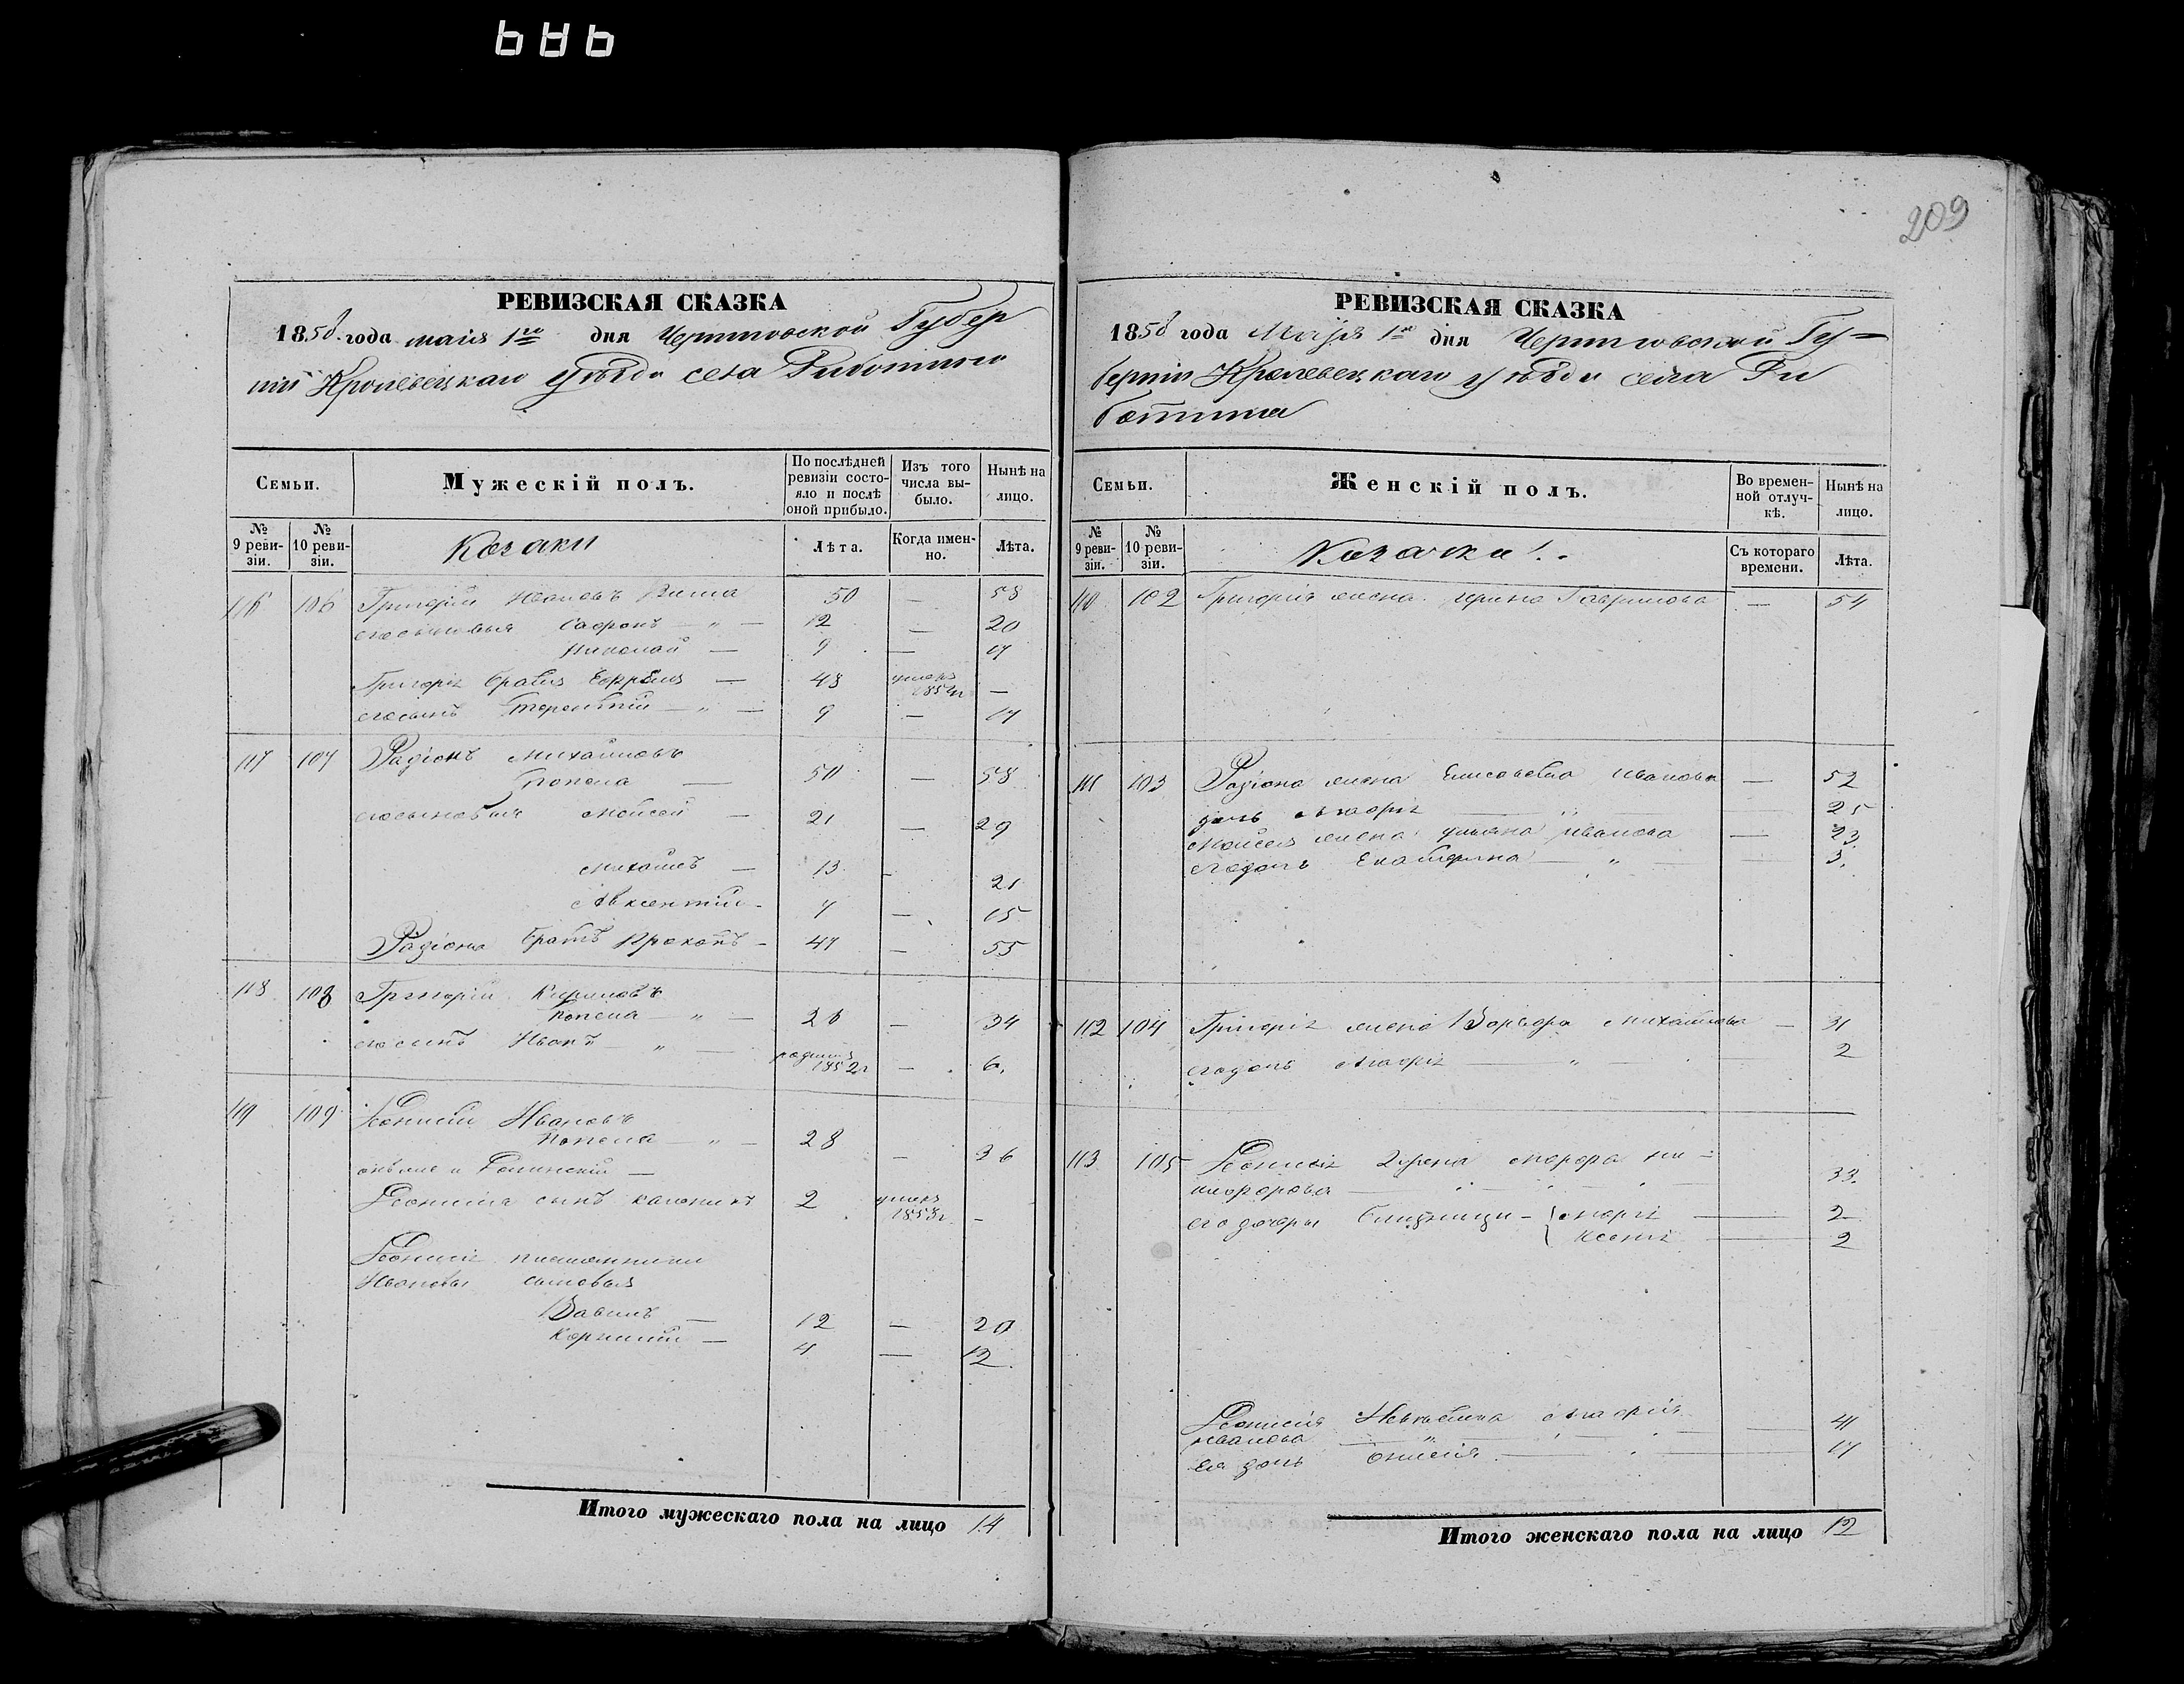 209
РЕВИЗСКАЯ СКАЗКА
1858 года маія 1го дня Черниговской Губер
ніи Кролевецкаго уѣзда села
Семьи.
Мужескій полъ.
По послѣдней ревизіи состояло и послѣ оной прибыло.
Изъ того числа выбыло.
Нынѣ на лицо.
№ 9 ревизіи.
№ 10 ревизіи.
Козаки
Лѣта.
Когда именно.
Лѣта.
116 106 Григорій Ивановъ 50 — 58
его сыновья Сафронъ — „ — 12 — 20
Николай — 9 — 17
Григорія братъ — 48 умеръ —
его сынъ Терентій — „ — 9 — 17
117 107 Радіонъ Михайловъ
Попена — 50 — 58
его сыновья Мойсей — 21 — 29
Михаилъ — 13 — 21
Авксентій — 7 — 15
Радіона братъ Прокопъ — 47 — 55
118 108 Григорій Кириловъ
Попена — „ — 26 — 34
его сынъ Иванъ — „ — родился 1852г — 6.
119 109 Деонисій Ивановъ
Попена — „ — 28 — 36
онъ же и —
Деонисія сынъ 2 умеръ 1853г. —
Деонисія племянники
Ивановы сыновья
Вавилъ — 12 — 20
Корнилій — 4 — 12
Итого мужескаго пола на лицо 14
РЕВИЗСКАЯ СКАЗКА
1858 года Маія 1го дня Черниговской Гу-
берніи Кролевецкаго уѣзда села Ри
ботина
Семьи.
Женскій полъ.
Во временной отлучкѣ.
Нынѣ на лицо.
№ 9 ревизіи.
№ 10 ревизіи.
Козачки
Съ котораго времени.
Лѣта.
110 102 Григорія жена Ирина Гаврилова — 54
111 103 Радіона жена Елисавета Иванова — 52
дочь Агафія — „ 25
Мойсея жена Ульяна Иванова — 23
его дочь Екатерина — „ — 3.
112 104 Григорія жена Варвара Михайлова — 31
его дочь Агафія — „ — 2
113 105 Деонисія 2 жена Марфа Ни-
кифорова — 33.
его дочери близници — { Марія — 2
Ксенія — 2
Деонисія Невѣстка Агафія
Иванова — „ — 41
Ея дочь — 17
Итого женскаго пола на лицо 12